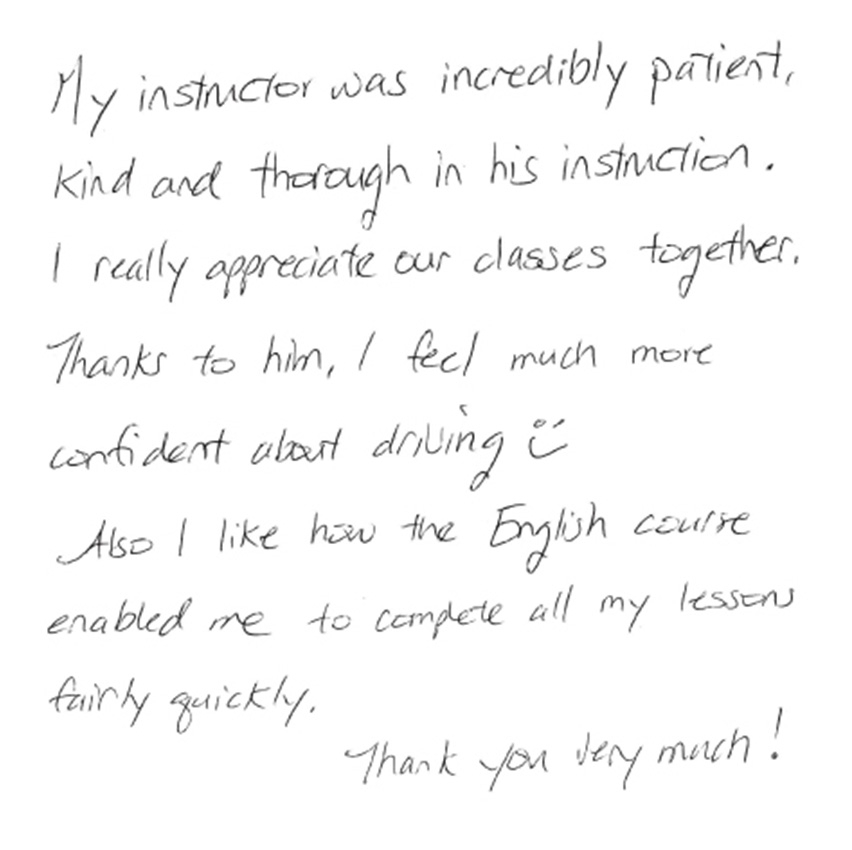 My instructor was incredibly patient,
kind and thorough in his instruction.
I really appreciate our classes together.
Thanks to him, I feel much more
confident about driving ü
Also I like how the English course
enabled me to complete all my lessons
fairly quickly.
Thank you very much!